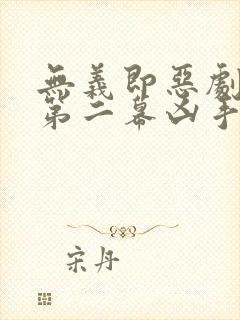 無義即惡劇
第二幕凶手
宋丹